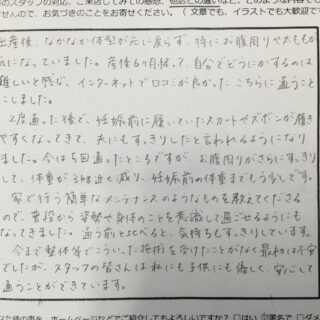 のスタッフの対応、ご来店してみての感想、他店との違いなど、どのような内容で
んので、お気づきのことをお寄せください。（文章でも、イラストでも大歓迎で
出産後、なかなか体型が元に戻らず、特にお腹周りや太もも
になっていました。産後6ヶ月経って、自分でどうにかするのは
難しいと感じ、インターネットで口コミが良かったこちらに通うこと
にしました。
2度通った後で、妊娠前に履いていたスカートやズボンが履き
やすくなってきて、夫にもすっきりしたと言われるようになり
ました。今は5回通ったところですが、お腹周りがさらにすっきり
して、体重が3kg近く減り、妊娠前の体重までもう少しです。
家で行う簡単なメンテナンスのようなものを教えてくださる
ので、普段から姿勢や身体のことを意識して過ごせるようにも
なってきました。通う前と比べると、気持ちもすっきりしています。
今まで整体等でこういった施術を受けたことがなく最初は不安
でしたが、スタッフの皆さんは私にも子供にも優しく、安心して
通うことができています。
た様の声を、ホームページなどでご紹介してもよろしいですか？ □はい □匿名で □ダメ